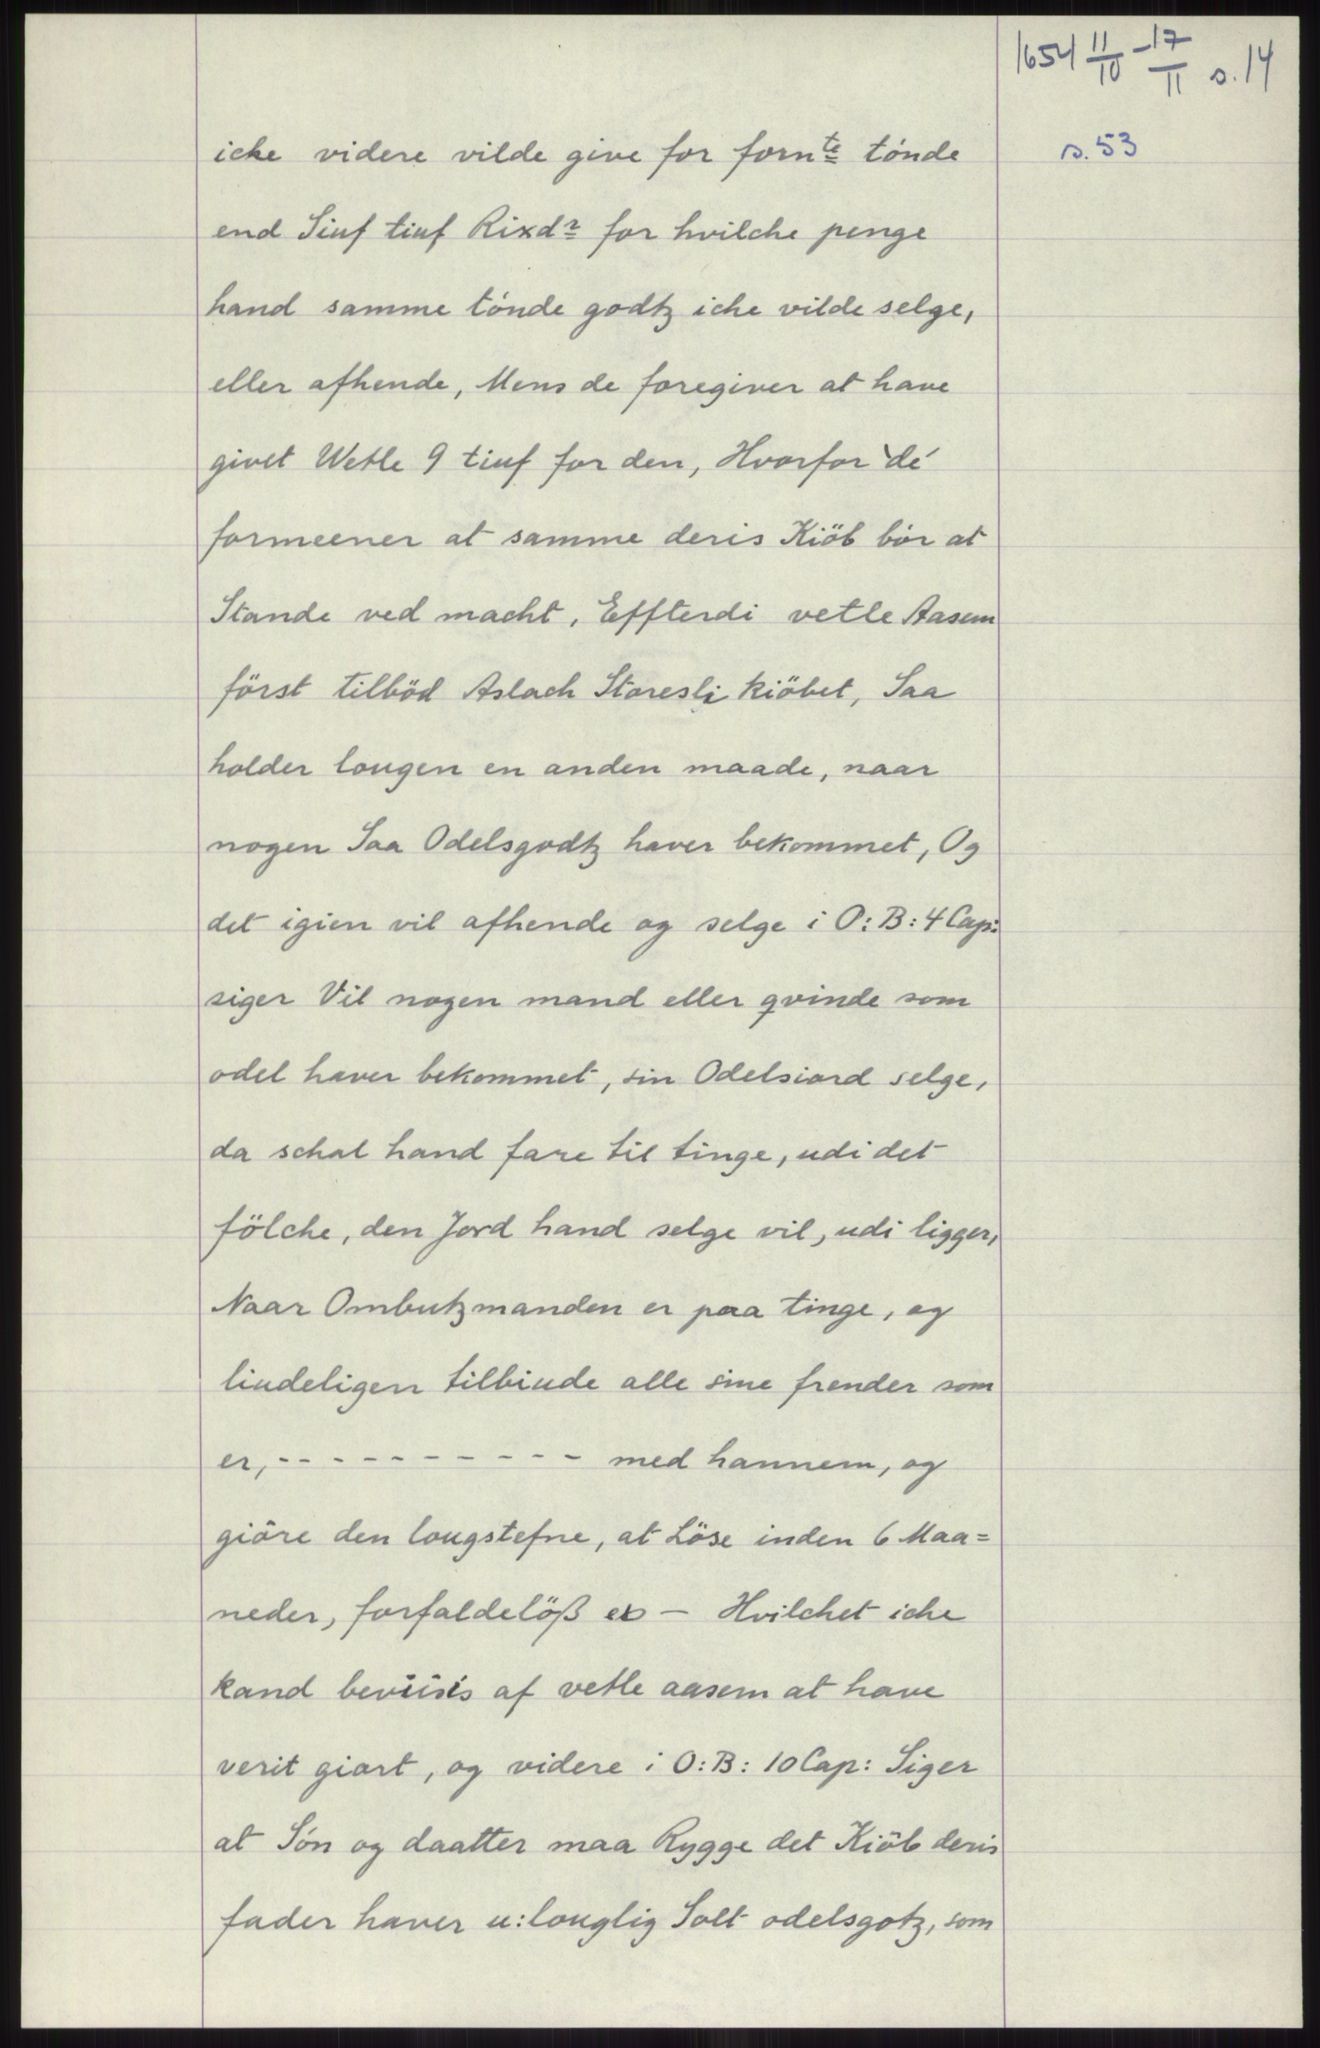 1654 11/10 - 17/11 s. 14
s. 53
icke videre vilde give for fornte tónde
end Siuf tiuf Rixdr for hvilche penge
hand samme tónde godtz iche vilde selge,
eller afhende, Mens de foregiver at have
givet Wetle 9 tiuf for den, Hvorfor de
formeener at samme deris Kiöb bör at
Stande ved macht, Effterdi vetle Aasem
först tilböd Aslach Storesli kiöbet, Saa
holder lougen en anden maade, naar
nogen Saa Odelsgodtz haver bekommet, Og
det igien vil afhende og selge i O: B: 4 Cap:
siger Vil nogen mand eller qvinde som
odel haver bekommet, sin Odelsiord selge,
da schal hand fare til tinge, udi det
fölche, den Jord hand selge vil, udi ligger,
Naar Ombutzmanden er paa tinge, og
liudeligen tilbiude alle sine frender som
er, - - - - - - - - - - - med hannem, og
giöre den lougstefne, at Löse inden 6 Maa=
neder, forfaldelöß er — Hvilchet iche
kand beviisis af vetle aasem at have
verit giort, og videre i O: B: 10 Cap: Siger
at Són og daatter maa Rygge det Kiöb deris
fader haver u:louglig Solt odelsgotz, som